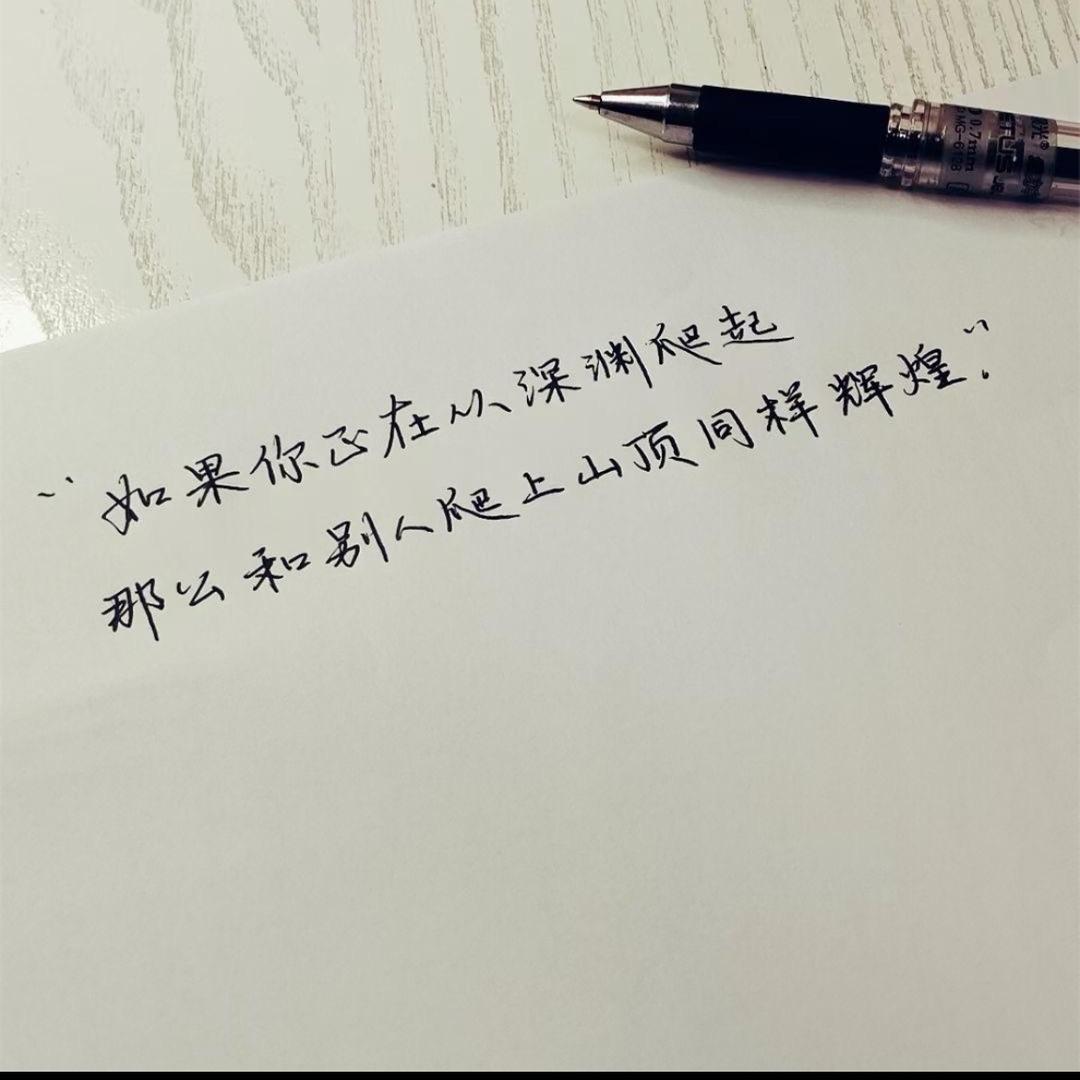 0.7mm
MG-6128
"如果你正在从深渊爬起
那么和别人爬上山顶同样辉煌."